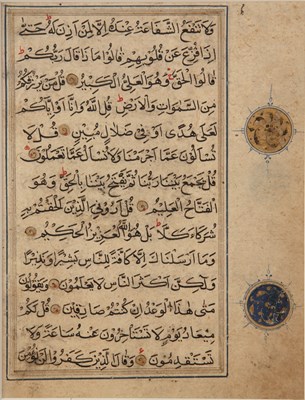 وَلَا تَنْفَعُ الشَّفَاعَةُ عِنْدَهُ إِلَّا لِمَنْ أَذِنَ لَهُ حَتَّى
إِذَا فُزِّعَ عَنْ قُلُوبِهِمْ قَالُوا مَاذَا قَالَ رَبُّكُمْ
قَالُوا الْحَقَّ وَهُوَ الْعَلِيُّ الْكَبِيرُ قُلْ مَنْ يَرْزُقُكُمْ
مِنَ السَّمَوَاتِ وَالْأَرْضِ قُلِ اللَّهُ وَإِنَّا أَوْ إِيَّاكُمْ
لَعَلَى هُدًى أَوْ فِي ضَلَالٍ مُبِينٍ قُلْ لَا
تُسْأَلُونَ عَمَّا أَجْرَمْنَا وَلَا نُسْأَلُ عَمَّا تَعْمَلُونَ
قُلْ يَجْمَعُ بَيْنَنَا رَبُّنَا ثُمَّ يَفْتَحُ بَيْنَنَا بِالْحَقِّ وَهُوَ
الْفَتَّاحُ الْعَلِيمُ قُلْ أَرُونِيَ الَّذِينَ أَلْحَقْتُمْ بِهِ
شُرَكَاءَ كَلَّا بَلْ هُوَ اللَّهُ الْعَزِيزُ الْحَكِيمُ
وَمَا أَرْسَلْنَاكَ إِلَّا كَافَّةً لِلنَّاسِ بَشِيرًا وَنَذِيرًا
وَلَكِنَّ أَكْثَرَ النَّاسِ لَا يَعْلَمُونَ وَيَقُولُونَ
مَتَى هَذَا الْوَعْدُ إِنْ كُنْتُمْ صَادِقِينَ قُلْ لَكُمْ
مِيعَادُ يَوْمٍ لَا تَسْتَأْخِرُونَ عَنْهُ سَاعَةً وَلَا
تَسْتَقْدِمُونَ وَقَالَ الَّذِينَ كَفَرُوا لَنْ نُؤْمِنَ